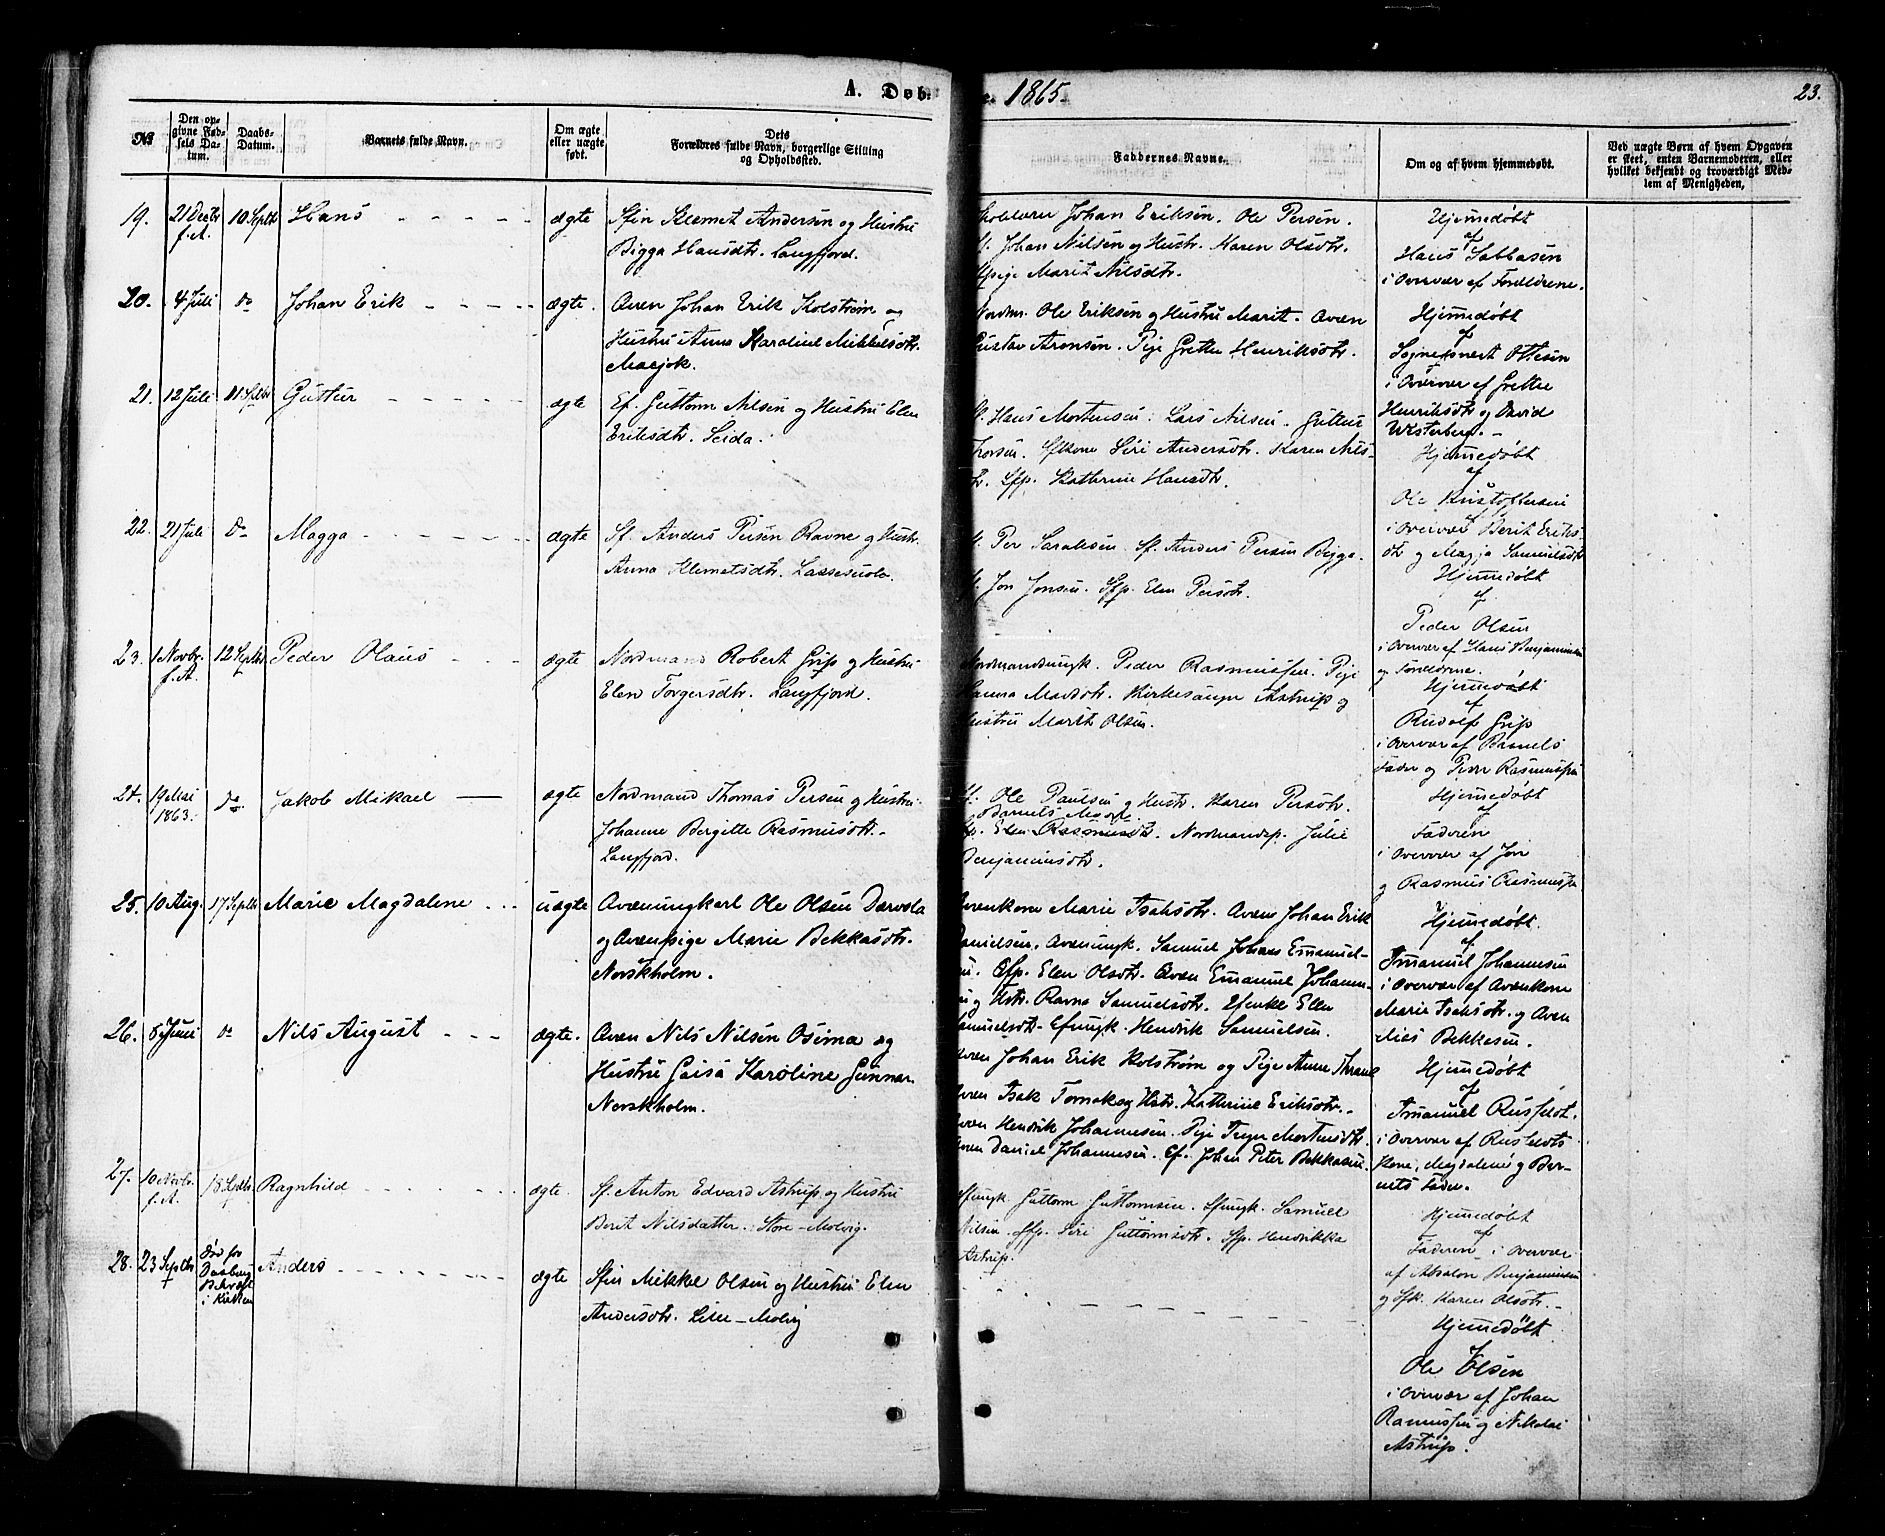 A. Døb
1865.
23.
№
Den op-
givne Fød-
sels Da-
tum.
Daabs-
Datum.
Barnets fulde Navn.
Om ægte
eller uægte
født.
Dets
Forældres fulde Navn, borgerlige Stilling
og Opholdssted.
Faddernes Navne.
Om og af hvem hjemmedøbt.
Ved uægte Børn af hvem Opgaven
er skeet, enten Barnemoderen, eller
hvilket bekjendt og troværdigt Med-
lem af Menigheden.
19. 21 Decbr
f. A. 10 Septbr Hans ægte
Sfin Klemet Andersen og Hustru
Bigga Hansdtr. Langfjord.
Johan Eriksen. Ole Persen.
Johan Nilsen og Hustr. Karen Olsdtr.
Marit Nilsdtr.
Hjemedøbt
af
Hans Sabbasen
i Overvær af Foreldrene.
20. 4 Juli do Johan Erik ægte.
Qven Johan Erik Kolstrøm og
Hustru Anna Karoline Mikkelsdtr.
Masjok.
Nordm. Ole Eriksen og Hustru Marit. Qvæn
Gustav Aronsen. Pige Grethe Henriksdtr.
Hjemedøbt
af
Sogneprest Ottesen
i Overvær af Grethe
Henriksdtr og David
Westerberg.
21. 12 Juli 11 Septbr Guttur ægte
Ef. Guttorm Nilsen og Hustru Elen
Eriksdtr. Seida.
Hans Mortensen. Lars Nilsen. Guttur
Thorsen. Sfkone Siri Andersdtr. Karen Nils-
dtr. Sfp. Kathrine Hansdtr.
Hjemedøbt
af
Ole Kristoffersen
i Overvær Berit Eriks-
dtr og Magga Samuelsdtr
22. 21 Juli do Magga ægte
Sf. Anders Persen Ravne og Hustr.
Anna Klemetsdtr. Lassesuolo.
Per Saraksen. Sf. Anders Persen Bigga.
Jon Jonsen. Sfp. Elen Persdtr.
Hjemedøbt
af
Peder Olsen
i Overvær af Hans Benjaminsen
og Foreldrene.
23. 1 Novbr.
f. A. 12 Septbr Peder Olaus ægte
Nordmand Robert Grip og Hustru
Elen Torgersdtr. Langfjord.
Nordmandsungk. Peder Rasmussen. Pige
Hanna Madsdtr. Kirkesanger Astrup og
Hustru Marit Olsen.
Hjemedøbt
af
Rudolf Grip
i Overvær af Barnets
Fader og Peder Rasmussen
24. 19 Mai
1863. do Jakob Mikael ægte
Nordmand Thomas Persen og Hustru
Johanne Bergitte Rasmusdtr.
Langfjord.
Ole Paulsen og Hustr. Karen Persdtr.
Barnets Moder.
Elen Rasmusdtr. Nordmandsp. Julie
Benjaminsdtr.
Hjemedøbt
af
Faderen
i Overvær af Jon
og Rasmus Rasmussen
25. 10 Aug. 17 Septbr Marie Magdalene uægte
Qvænungkarl Ole Olsen Dærvola
og Qvænpige Marie Bekkasdtr.
Norskholm.
Qvenkone Marie Isaksdtr. Qvæn Johan Erik
Danielsen. Qvænungk. Samuel Johans Emanuel-
sen. Qfp. Elen Olsdtr. Qvæn Emanuel Johann-
sen og Hstr. Ravna Samuelsdtr. Efenke Ellen
Samuelsdtr. Efungk. Hendrik Samuelsen.
Hjemedøbt.
af
Imanuel Johannesen
i Overvær af Qvænkone
Marie Isaksdtr. og Qvæn
Nils Bekkasen.
26. 8 Juni do Nils August ægte.
Qvæn Nils Nilsen Osima og
Hustru Gaisa Karoline Gunnar.
Norskholm.
Qvæn Johan Erik Kolstrøm og Pige Anne Thrane
Qvæn Isak Tornak og Hstr. Kathrine Eriksdtr.
Qvæn Hendrik Johannesen. Pige Inger Mortensdtr.
Qvæn Daniel Johannesen. Ef. Johan Peter Bekkasen.
Hjemedøbt
af
Imanuel Rusfeldt.
i Overvær af Rusfeldts
Kone, Magdalene og Bar-
nets Fader.
27. 10 Novbr.
f. A. 18 Septbr. Ragnhild ægte.
Sf. Anton Edvard Astrup og Hustru
Berit Nilsdatter. Store-Molvig.
Sfungk. Guttorm Guttormsen. Sfungk. Samuel
Nilsen. Sfp. Siri Guttormsdtr. Sfp. Hendrikka
Astrup.
Hjemedøbt
af
Faderen i Overvær
af Absalon Benjaminsen
og Sfk. Karen Olsdtr.
28. 23 Septbr Død før
Daabens
Bekræft.
i Kirken Anders ægte
Sfin Mikkel Olsen og Hustru Elen
Andersdtr. Lille-Molvig
Hjemedøbt
af
Ole Olsen
i Overvær af Johan
Rasmussen og Nikolai
Astrup.